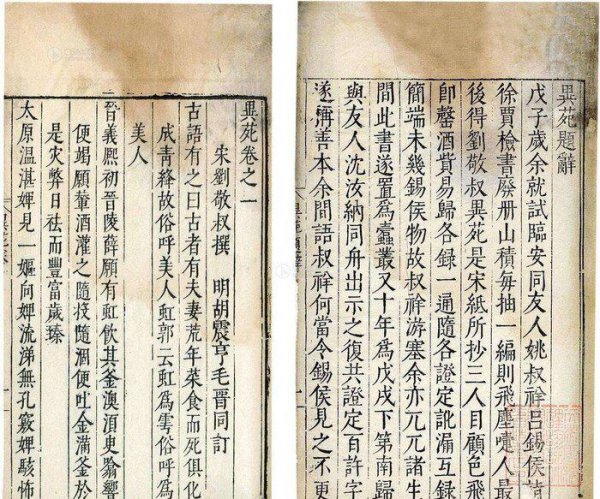 異苑題辭
戊子歲余就試臨安同友人姚叔祥呂錫侯詣
徐賈檢書廢册山積每抽一編則飛塵嚏人最
後得劉敬叔異苑是宋紙所抄三人目顧色飛
卽罄酒費易歸各錄一通隨各證定訛漏互錄
簡端未幾錫侯物故叔祥游塞余亦兀兀諸生
間此書遂置爲蠹叢又十年爲戊戌下第南歸
與友人沈汝納同舟出示之復共證定百許字
遂稱善本余間語叔祥何當令錫侯見之不更
異苑卷之一
宋劉敬叔撰 明胡震亨毛晉同訂
古語有之曰古者有夫妻荒年菜食而死俱化
成靑絳故俗呼美人虹郭云虹爲雩俗呼
美人
晉義熙初晉陵薛願有虹飲其釜澳須臾翕響
便竭願輦酒灌之隨投隨涸便吐金滿釜於
是灾弊日祛而豐富歲臻
太原温湛婢見一嫗向婢流涕無孔竅婢駭怖